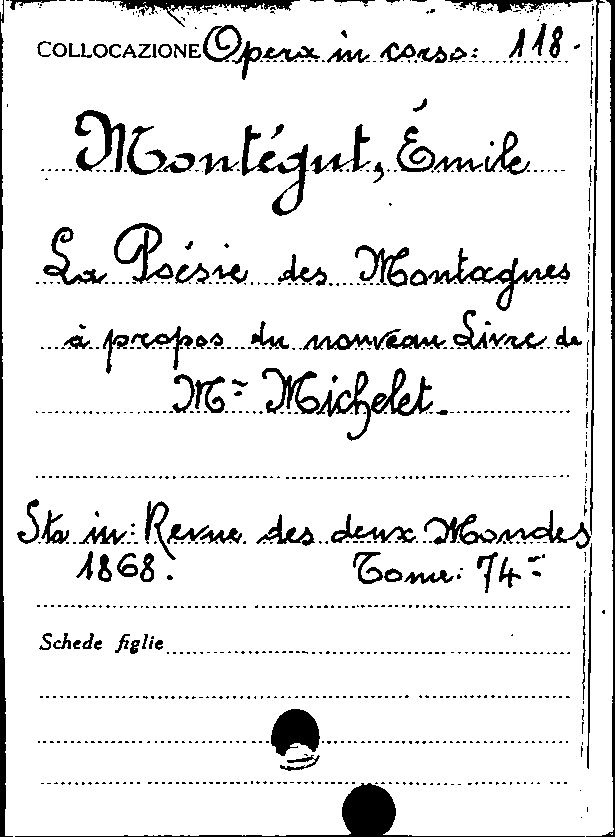 COLLOCAZIONE Opera in corso: 118.
Montégut, Émile
La Poésie des Montagnes
à propos du nouveau Livre de
Mr Michelet.
Sta in: Revue des deux Mondes
1868. Tome: 74
Schede figlie